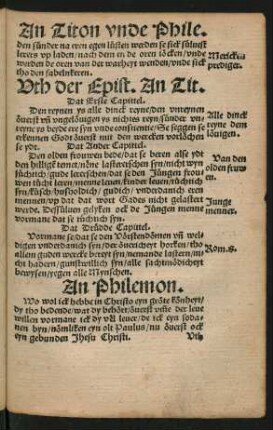 An Titon vnde Phile.
den sünder na eren egen lüsten werden se sick süluest
lerers vp laden / nach dem en de oren iöcken / vnde
werden de oren van der warheyt wenden / vnde sick
tho den fabeln keren.
Merckt
prediger.
Vth der Epist. An Tit.
Dat Erste Capittel.
Den reynen ys alle dinck reyne / den vnreynen
öuerst vñ vngelöuigen ys nichtes reyn / sünder vn-
reyne ys beyde ere syn vnde consciencie / Se seggen se
erkennen Godt öuerst mit den wercken vorlöchen
se ydt.
Alle dinck
reyne dem
löuigen.
Dat Ander Capittel.
Den olden frouwen bede / dat se sick beren alse ydt
den hilligen temet / nüne lastersschen syn / nicht wyn
süchtich / gude lereschen / dat se den Jüngen frou
wen tücht leren / ere menne leuen / kinder leuen / tüchtich
syn / küsch / huszholdich / güdich / vnderdanich eren
mennen vp dat dat wort Gades nicht gelastert
werde. Dessüluen gelyken ock de Jüngen menne
vormane dat se tüchtich syn.
Van den
olden frow
wen.
Junge
menner.
Dat Drüdde Capittel.
Vormane se / dat se den Vörstendömen vñ wel-
digen vnderdanich syn / der öuericheyt horken / tho
allem guden wercke bereyt syn / nemande lastern / ni-
cht haddern / gunstwillich syn / alle sachtmödicheyt
bewysen / yegen alle Mynschen.
Röm.
An Philemon.
Wo wol ick hebbe in Christo eyn gröte könheyt /
dy tho bedende / wat dy behört / öuerst vmme der leue
willen vormane ick dy / ick eyn soda-
nen byn / nömliken eyn olt Paulus / nu öuerst ock
eyn gebunden Jhesu Christi.
Vth